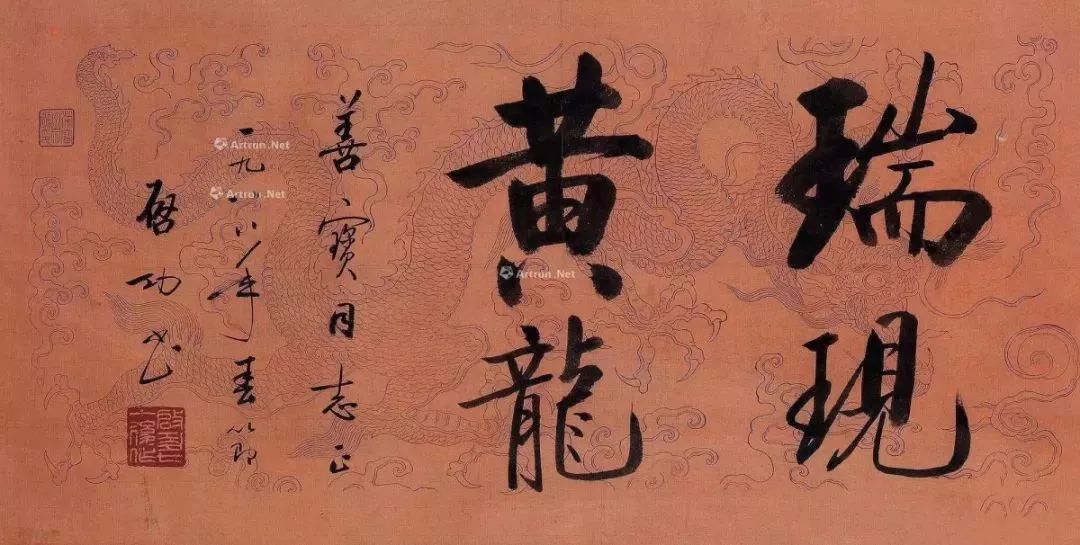 瑞現
黄龍
善寶同志正
一九八八年春節
启功书
Artron.Net
Artron.Net
Artron.Net